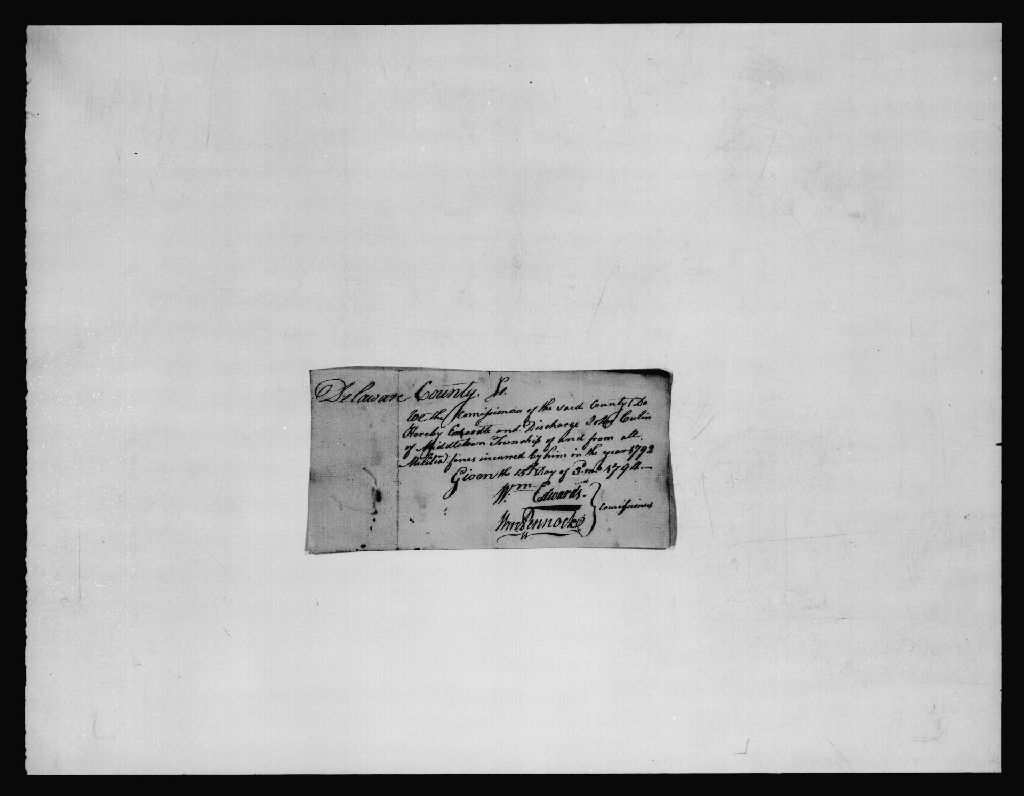 Delaware County Ss.
We the Comissioners of the said County Do
Hereby and Discharge Culin
of Middletown Township of and from all
Militia fines incurred by him in the year 1792
Given the 15th Day of 3 mo 1794
Wm Edwards
Wm Pennock
Comissioners